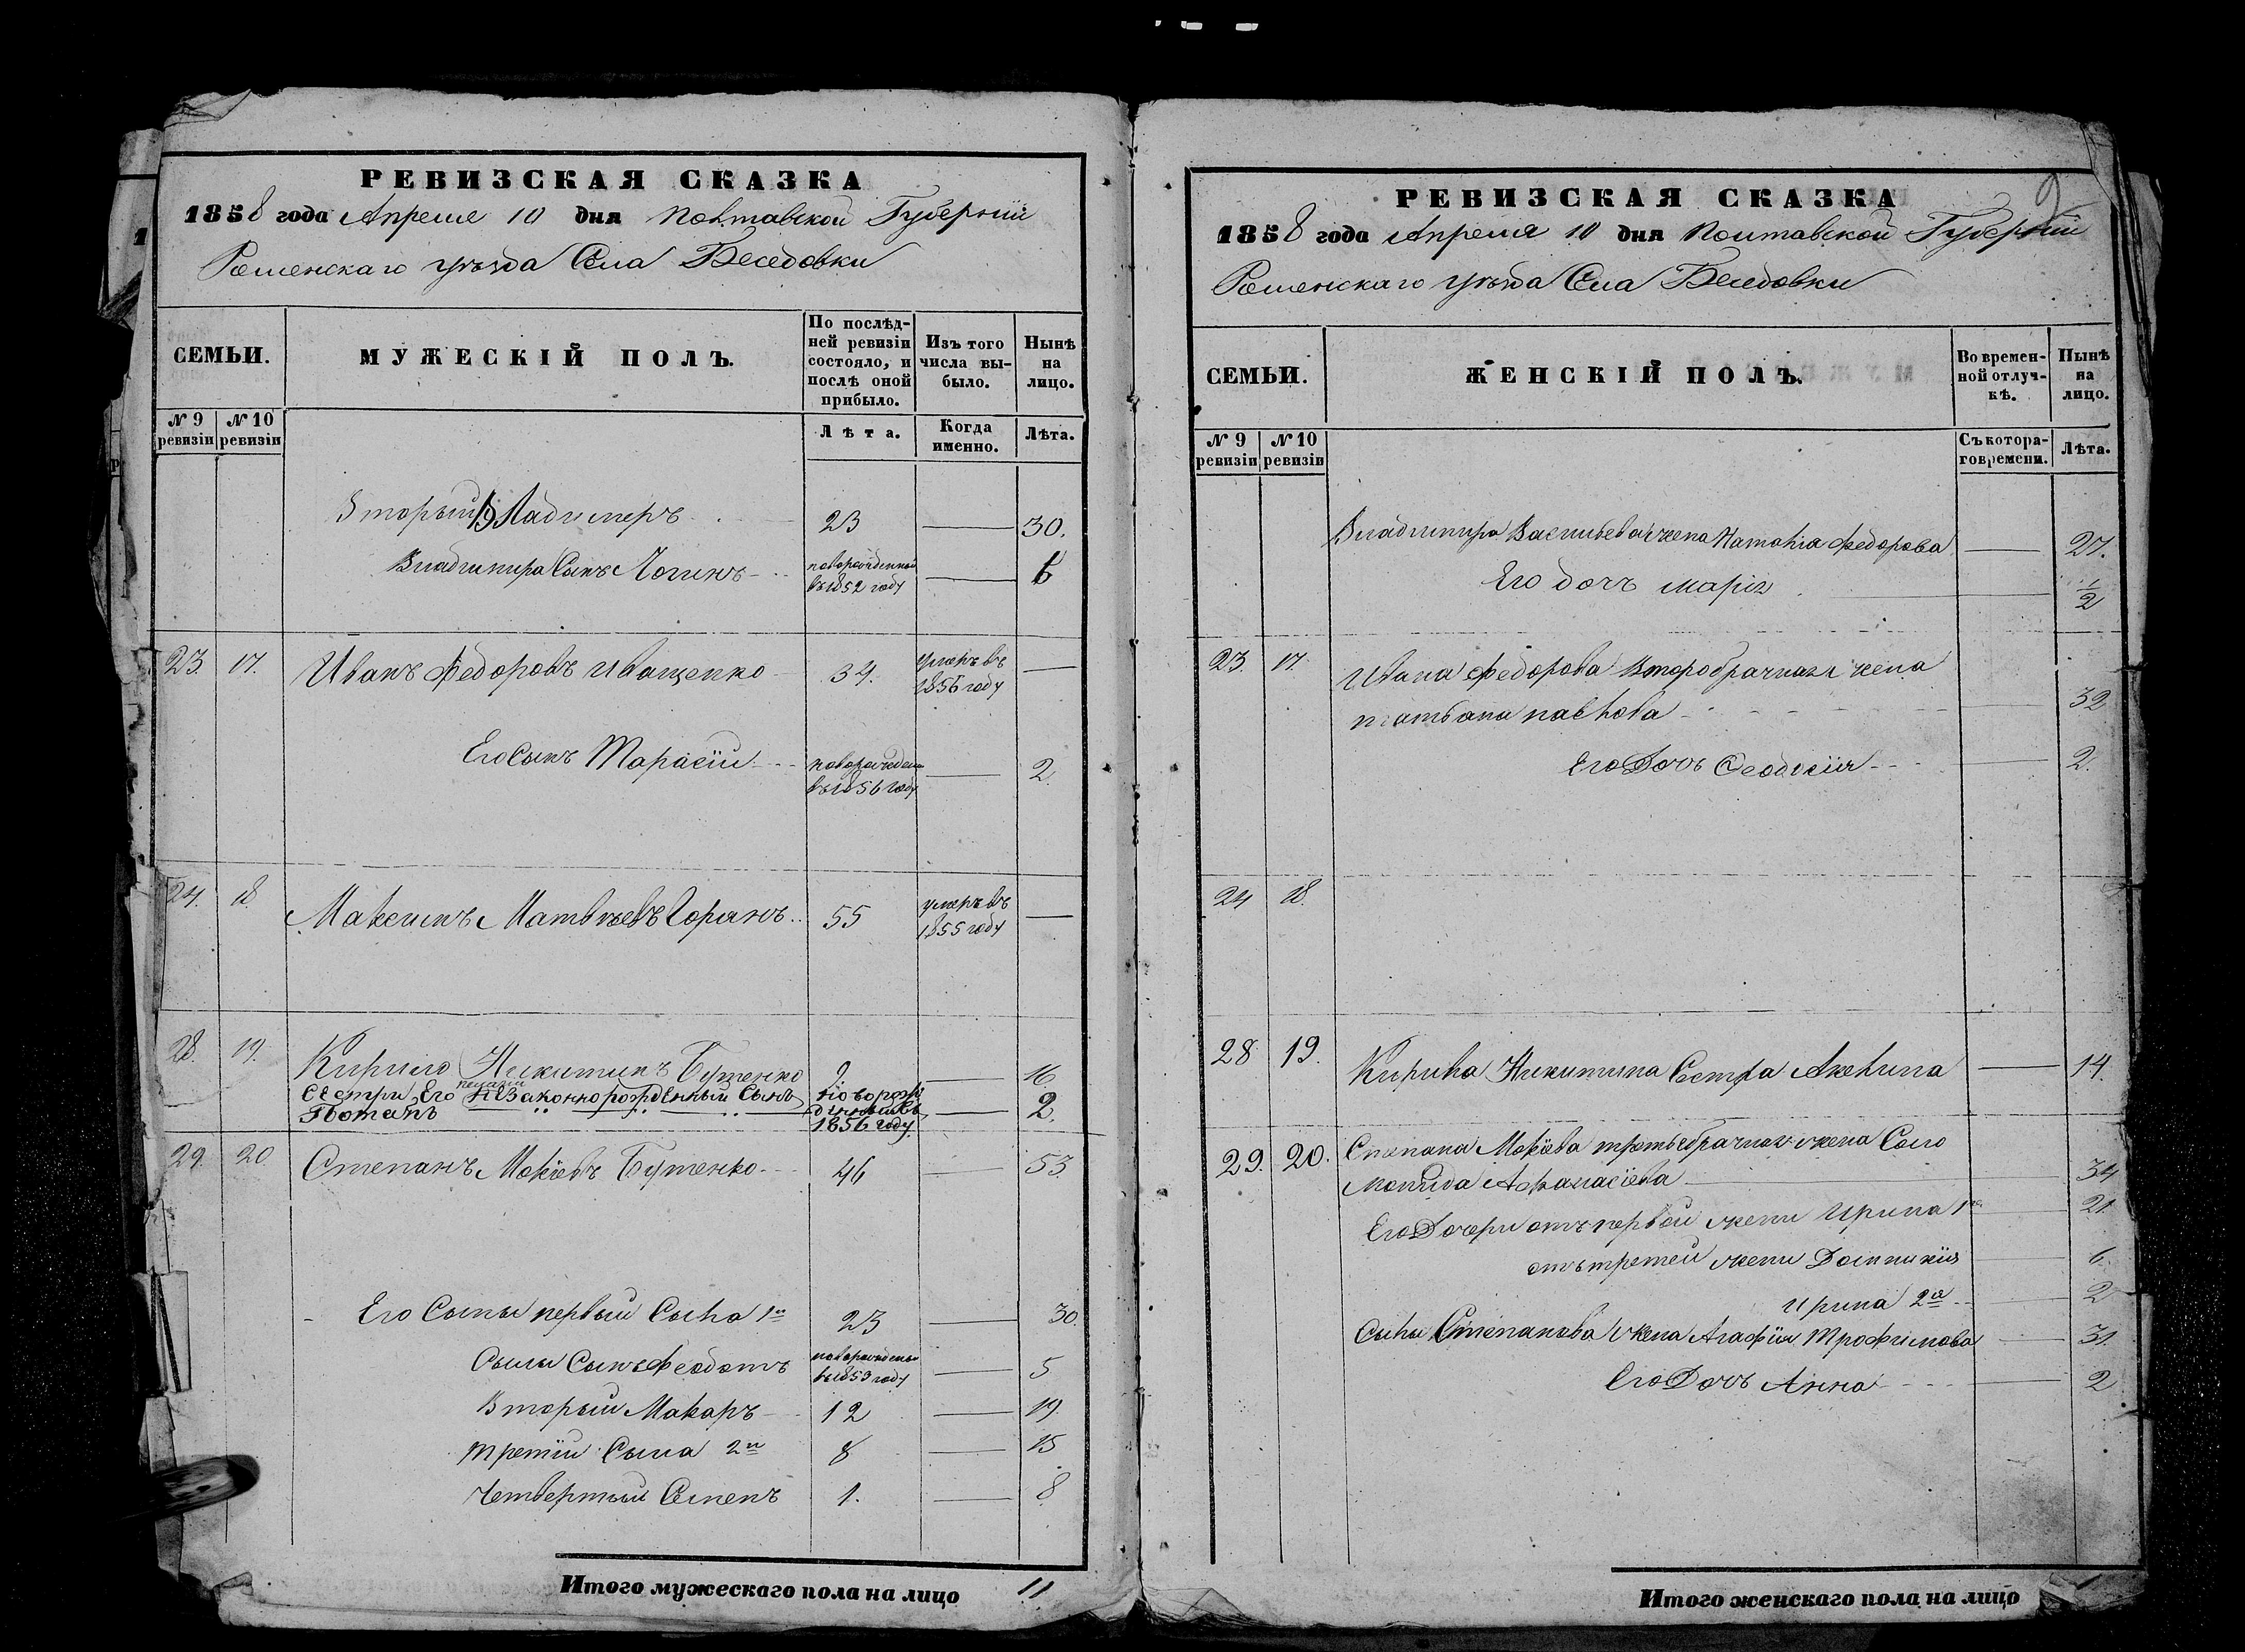 РЕВИЗСКАЯ СКАЗКА
1858 года Апреля 10 дня Полтавской Губернии
Роменскаго уезда Села Беседовки
СЕМЬИ.
МУЖЕСКІЙ ПОЛЪ.
По послѣд-
ней ревизіи
состояло, и
послѣ оной
прибыло.
Изъ того
числа вы-
было.
Нынѣ
на
лицо.
№ 9 ревизіи
№ 10 ревизіи
Лѣта.
Когда
именно.
Лѣта.
Вторый Владимеръ 23 — 30.
Владимира Сынъ Логинъ новорожденный въ 1852 году — 6
23. 17. Иванъ Федоровъ Иващенко 34. умеръ въ 1856 году —
Его Сынъ Тарасій новорожден въ 1856 году — 2.
24. 18. Максимъ Матвѣевъ 55 умеръ въ 1855 году —
28. 19. Кирило Никитинъ Бутенко 9 — 16
Сестри Его Незаконнорожденный Сынъ новорож
Потапъ денный въ — 2.
1856 году
29. 20 Степанъ Мокіевъ Бутенко 46 — 53.
Его Сыны первый Сыла 1й 23 — 30.
Сылы Сынъ Феодотъ новорожденъ въ 1853 году — 5
Вторый Макаръ 12 — 19
третій Сыла 2й 8 — 15
Четвертый Семенъ 1. — 8
Итого мужескаго пола на лицо 11
9
РЕВИЗСКАЯ СКАЗКА
1858 года Апреля 10 дня Полтавской Губерніи
Роменскаго уезда Села Беседовки
СЕМЬИ.
ЖЕНСКІЙ ПОЛЪ.
Во времен-
ной отлуч-
кѣ.
Нынѣ
на
лицо.
№ 9 ревизіи
№ 10 ревизіи
Съ котора-
го времени.
Лѣта.
Владимира Васильева жена Наталіа Федорова — 27.
Его дочъ Марія — 1/2
23. 17. Ивана Федорова Второбрачная жена
татьана павлова 32
Его Дочь Феодосія — 2.
24 18.
28 19. Кирила Никитина Сестра Акелина — 14.
29. 20. Степана Мокіева третьебрачная жена Соло
монида Афанасіева — 34
Его Дочери отъ первой жени Ирина 1я — 21.
отъ третей жени Домникія — 6.
Ирина 2я — 2
Сылы Степанова жена Агафія Трофимова — 31.
Его Дочь Анна — 2
Итого женскаго пола на лицо